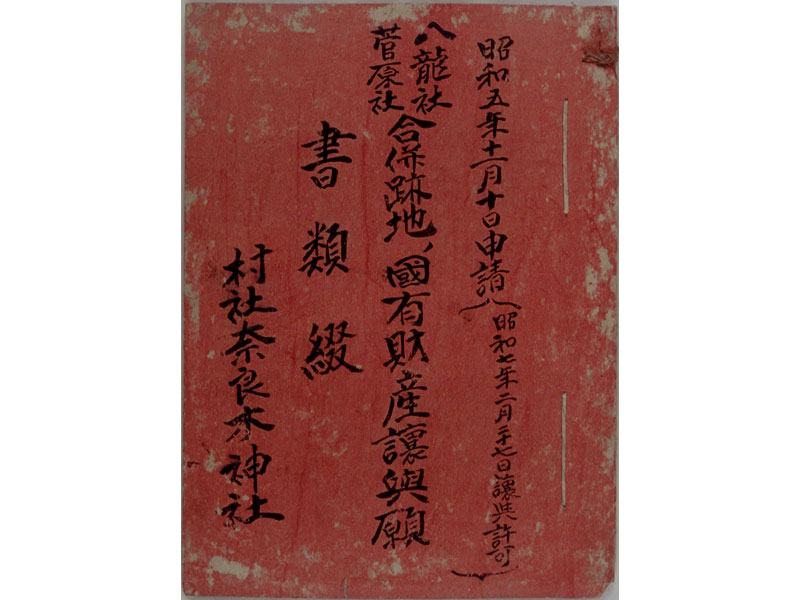 昭和五年十一月十日申請(昭和七年二月二十七日讓與許可)
八龍社
菅原社
合併跡地、國有財産讓與願
書類綴
村社奈良木神社